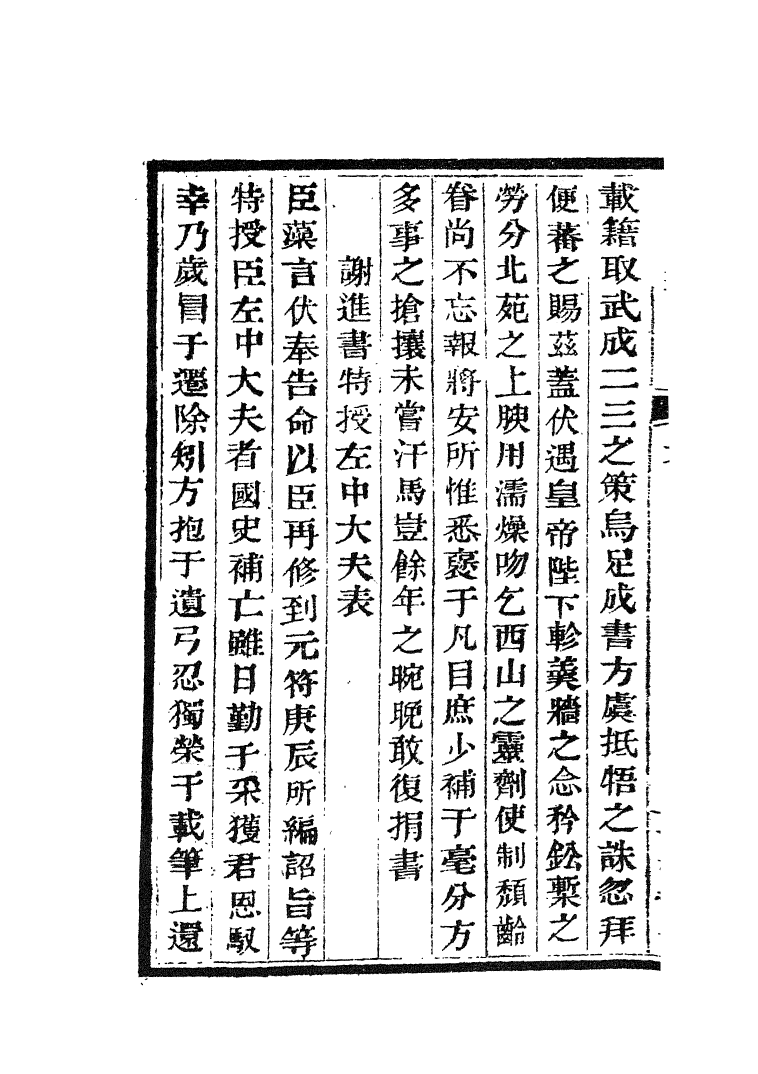 載籍取武成二三之策烏足成書方虞抵牾之誅忽拜
便蕃之賜茲蓋伏遇皇帝陛下軫羹牆之念矜鈆槧之
勞分北苑之上腴用濡燥吻乞西山之靈劑使制頽齡
眷尚不忘報將安所惟悉褒于凡目庶少補于毫分方
多事之搶攘未嘗汗馬豈餘年之晼晚敢復捐書
謝進書特授左中大夫表
臣藻言伏奉告命以臣再修到元符庚辰所編詔旨等
特授臣左中大夫者國史補亡雖日勤于采獲君恩馭
幸乃歲冒于遷除矧方抱于遺弓忍獨榮于載筆上還